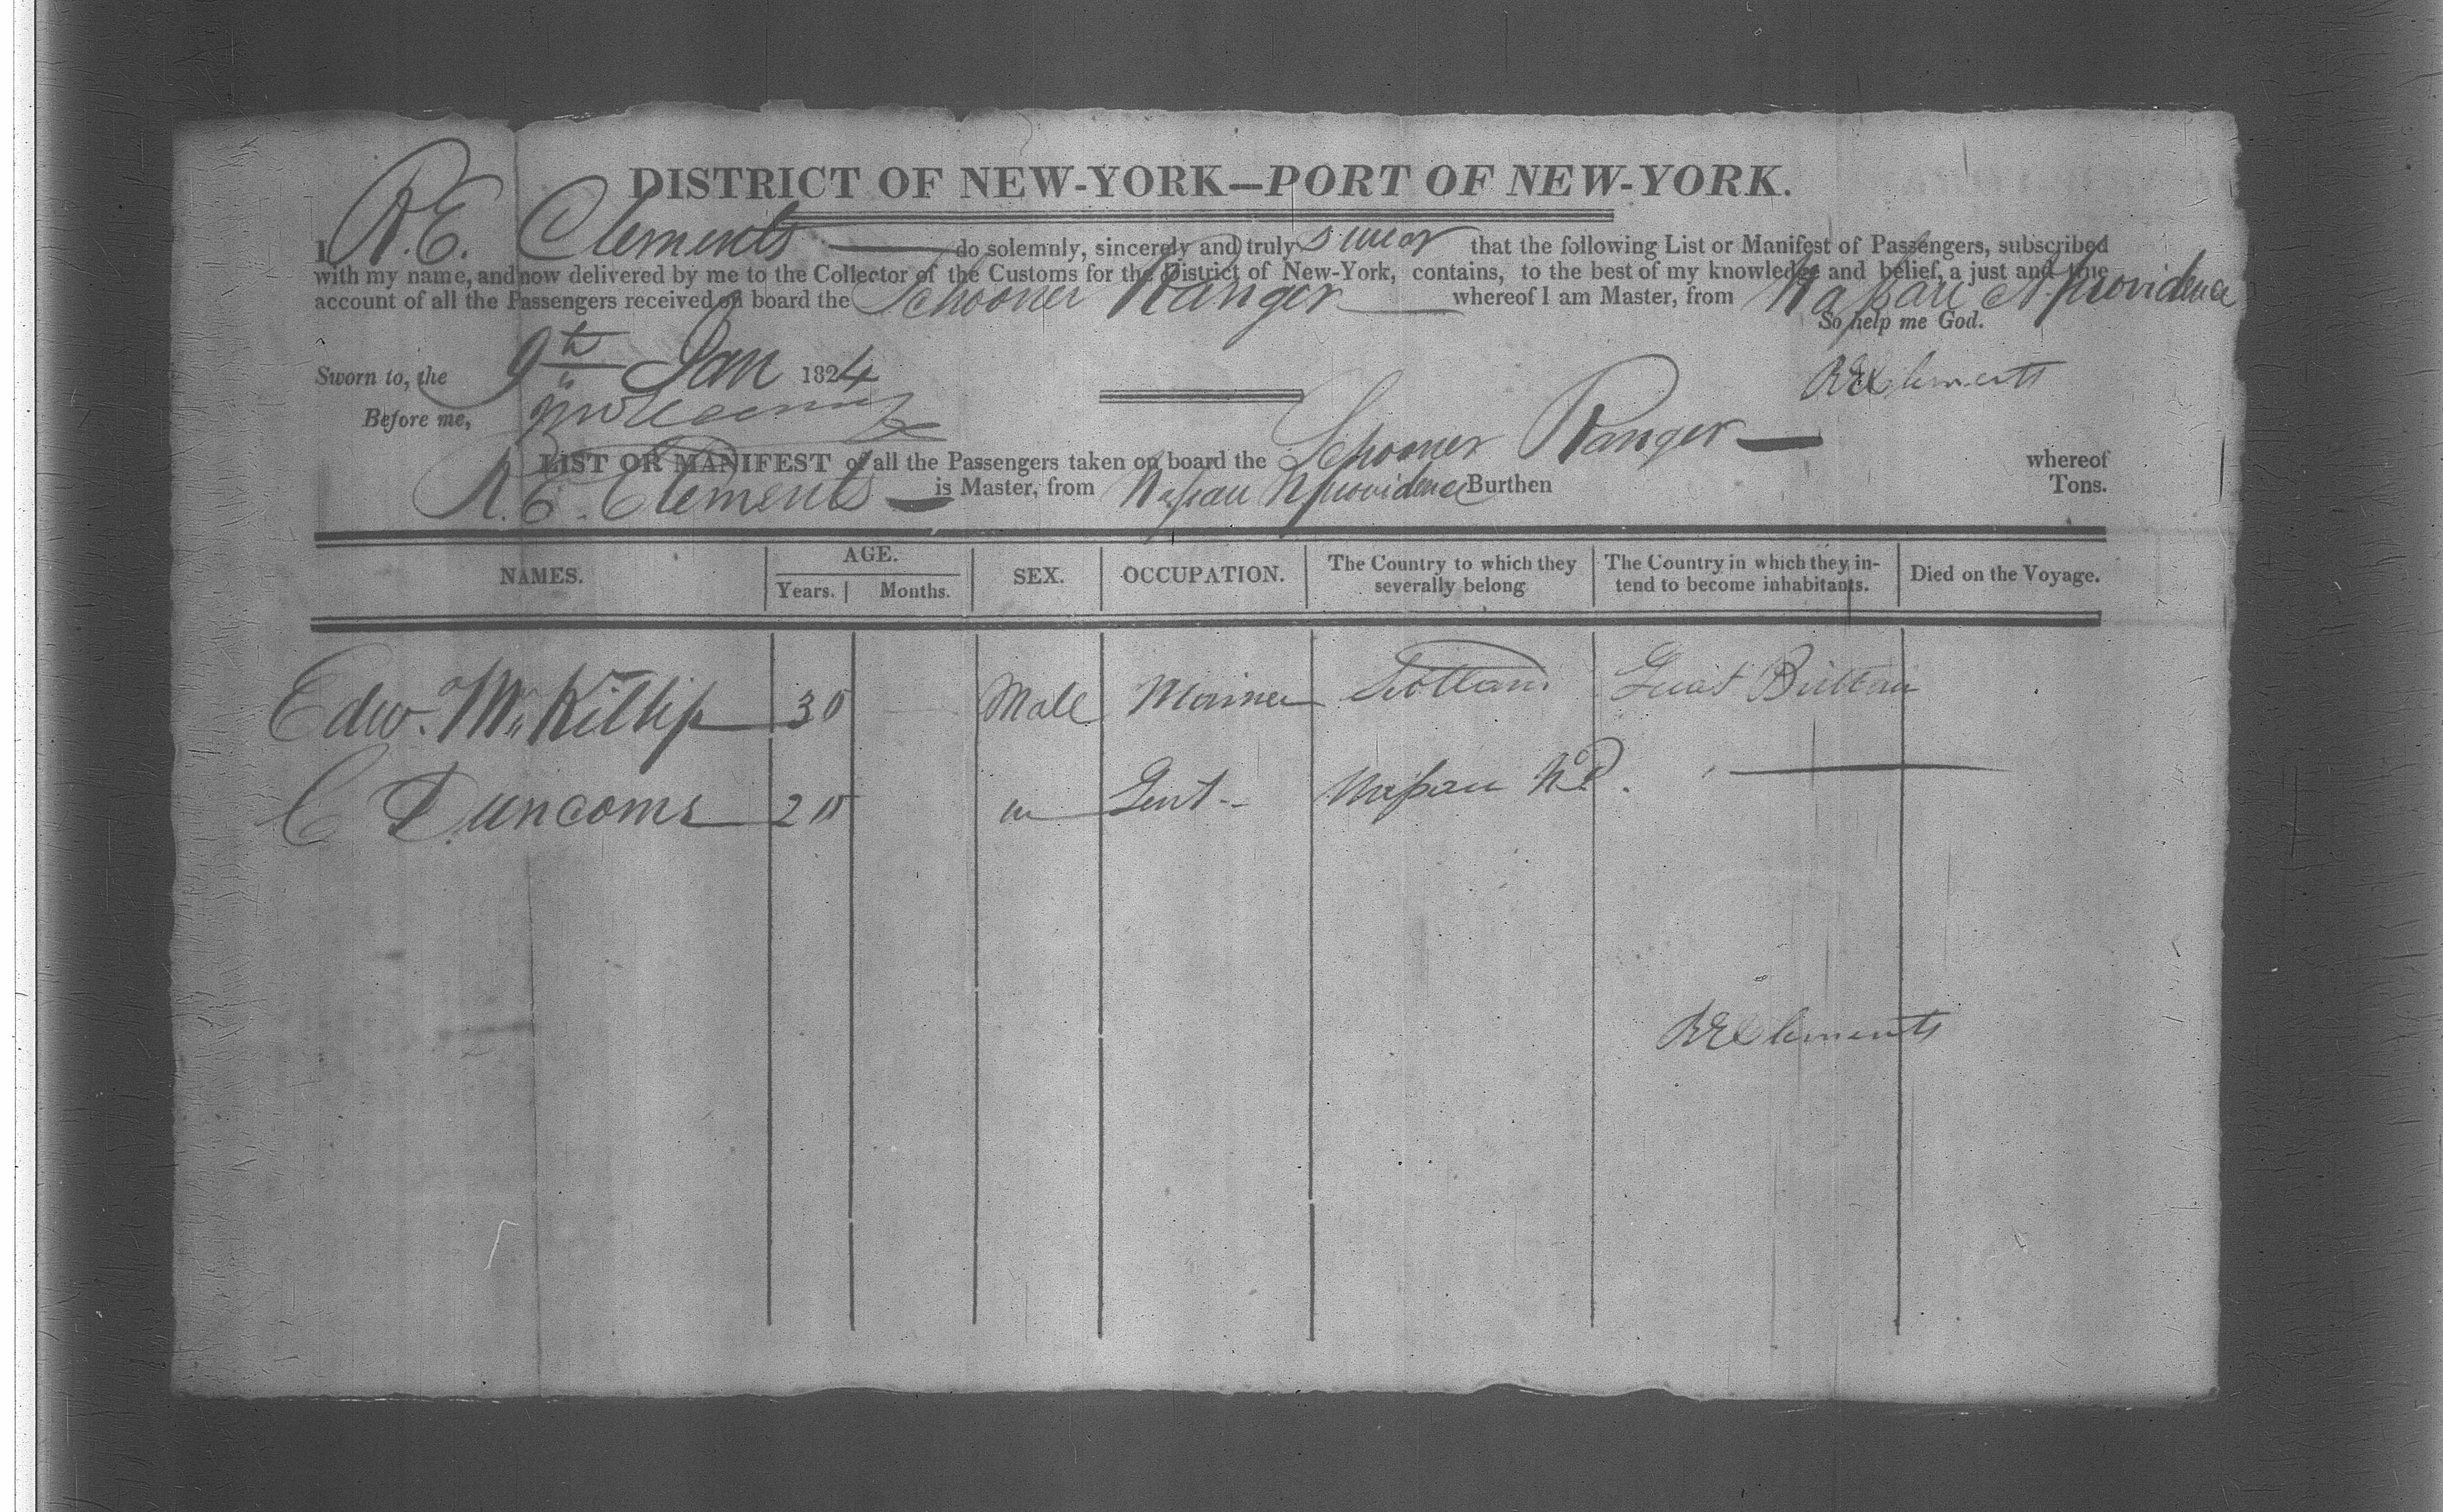 DISTRICT OF NEW-YORK—PORT OF NEW-YORK.
I R.E. Clements do solemnly, sincerely and truly swear that the following List or Manifest of Passengers, subscribed
with my name, and now delivered by me to the Collector of the Customs for the District of New-York, contains, to the best of my knowledge and belief, a just and true
account of all the Passengers received on board the Schooner Ranger whereof I am Master, from Nassau N. Providence
So help me God.
Sworn to, the 9th Jan 1824
R E Clements
Before me,
LIST OR MANIFEST of all the Passengers taken on board the Schooner Ranger whereof
R. E. Clements is Master, from Nassau N Providence Burthen Tons.
NAMES. AGE. Years. Months. SEX. OCCUPATION. The Country to which they severally belong The Country in which they intend to become inhabitants. Died on the Voyage.
Edw. Mc Killip 30 Male Mariner Scotland Great Brittain
C Duncome 20 Gent Nassau N.P.
R E Clements